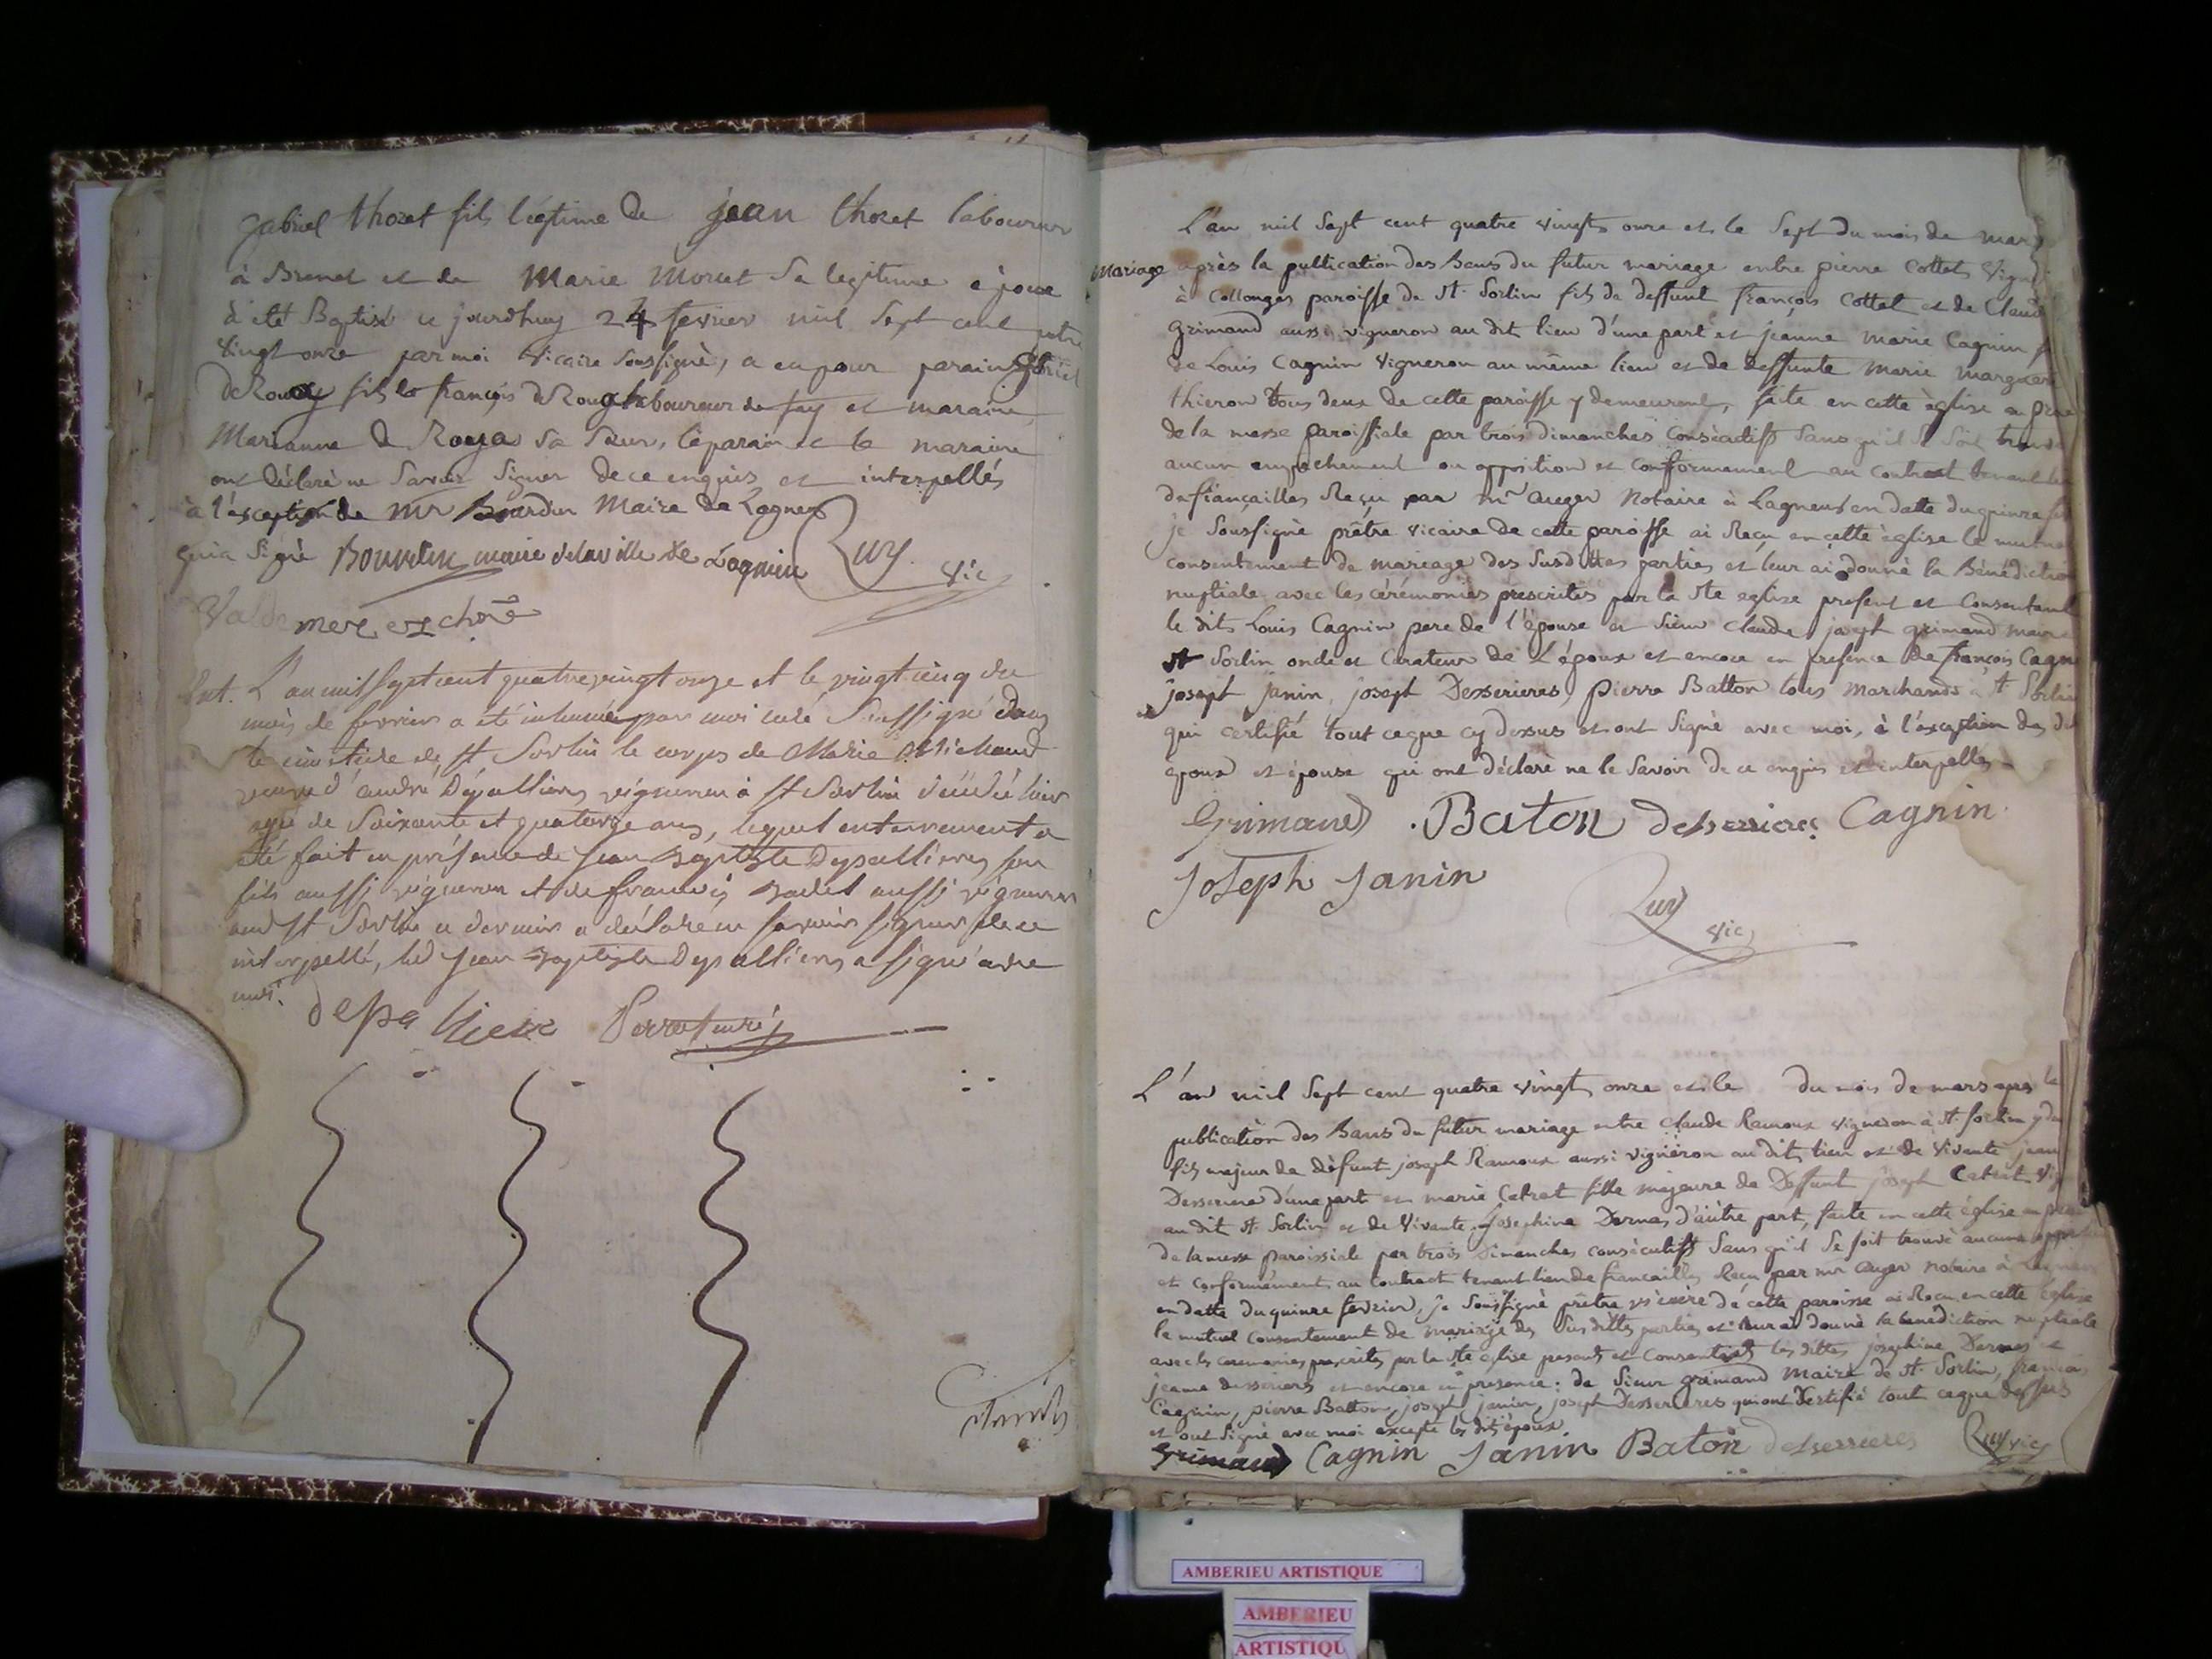 gabriel thozet fils légitime de jean thozet laboureur
à Brenet et de Marie Moret Sa legitime épouse
à été Baptisé ce jourdhuy 24 fevrier mil Sept cent quatre
vingt onze par moi vicaire Soussigné, a eu pour parain
fils françois laboureur de fay et maraine
Marianne de Sa Sœur, le parain et la maraine
ont déclaré ne Savoir Signer de ce enquis et interpellés
à l'exception de Mr Bourdin Maire de Lagneu
qui a Signé Bourdin maire de la ville de Lagnieu Ruy vic

Ent. L'an mil sept cent quatre vingt onze et le vingt cinq du
mois de fevrier a été inhumée par moi curé Soussigné dans
le cimetiere de st Sorlin le corps de Marie Michaud
veuve d'andré Dépallieres vigneron à st Sorlin décédé hier
agé de Soixante et quatorze ans, lequel enterrement a
été fait en présence de Jean Baptiste Depallieres son
fils aussi vigneron et de françois aussi vigneron
aud st Sorlin ce dernier a déclaré ne savoir signer de ce
interpellé, led Jean Baptiste Depallieres a signé avec
moi.
depalliere Perret curé

L'an mil Sept cent quatre vingts onze et le Sept du mois de mars
Mariage après la publication des Bans du futur mariage entre pierre Cottet
à Collonges paroisse de St. Sorlin fils de deffunt françois Cottet et de
Grimand aussi vigneron au dit lieu d'une part et jeanne Marie Cagnin
de Louis Cagnin vigneron au même lieu et de deffunte Marie
thieron tous deux de cette paroisse y demeurent, faite en cette église au
de la messe paroissiale par trois dimanches Consécutifs Sans qu'il se Soit trouvé
aucun empechement ou opposition et conformement au contract tenant lieu
de fiançailles Reçu par Mr Auger Notaire à Lagneu en datte du quinze
je Soussigné prêtre vicaire de cette paroisse ai Reçu en cette église le mutuel
consentement de mariage des Susdittes parties et leur ai donné la Bénédiction
nuptiale avec les cérémonies prescrites par la Ste eglise present et Consentant
le dit Louis Cagnin pere de l'épouse et Sieur Claude joseph grimand maire
St Sorlin oncle et Curateur de l'époux et encore en presence de françois
joseph janin, joseph Desserieres, pierre Batton tous Marchands à St Sorlin
qui certifié tout ceque cy dessus et ont Signé avec moi, à l'exception des
epoux et épouse qui ont déclaré ne le Savoir de ce enquis et interpellés
Grimand . Baton desserrieres Cagnin
Joseph Janin
Ruy
vic

L'an mil Sept cent quatre vingts onze et le du mois de mars après la
publication des Bans du futur mariage entre Claude Ramoux vigneron à St. Sorlin
fils majeur de défunt joseph Ramoux aussi vigneron au dit lieu et de vivante
d'une part et marie Catret fille majeure de Deffunt joseph Catret
au dit St. Sorlin et de vivante Josephine Dernas d'autre part, faite en cette église au
de la messe paroissiale par trois dimanches consécutifs Sans qu'il Se soit trouvé aucune
et conformement au contract tenant lieu de fiancailles Reçu par mr Auger notaire à
en datte du quinze fevrier, je Soussigné prêtre vicaire de cette paroisse ai Reçu en cette Eglise
le mutuel consentement de mariage des Susdittes parties et leur ai donné la bénédiction nuptiale
avec les ceremonies prescrites par la Ste eglise presents et Consentants les dittes josephine Dernas et
jeanne desserieres et encore en presence: de Sieur grimand Maire de St. Sorlin, françois
Cagnin, pierre Batton, joseph janin, joseph Desserieres qui ont Certifié tout ceque dessus
et ont Signé avec moi excepté les dits époux.
Grimand Cagnin Janin Baton desserrieres Ruy vic

AMBERIEU ARTISTIQUE
AMBERIEU
ARTISTIQU